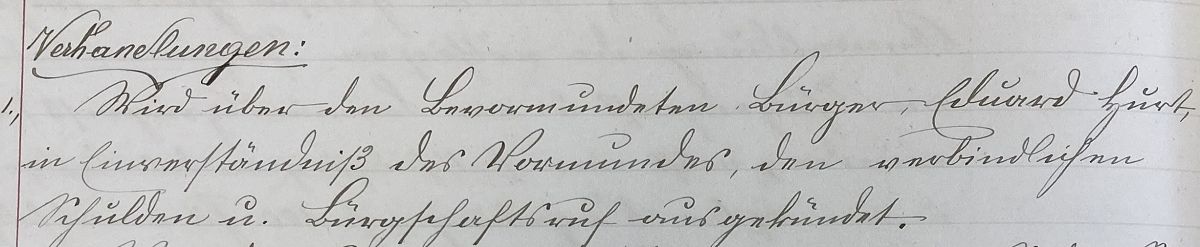 Verhandlungen:
1., Wird über den Bevormundeten Bürger, Eduard Hurt,
in Einverständniß des Vormundes, den verbindlichen
Schulden u. Bürgschaftsruf ausgekündet.